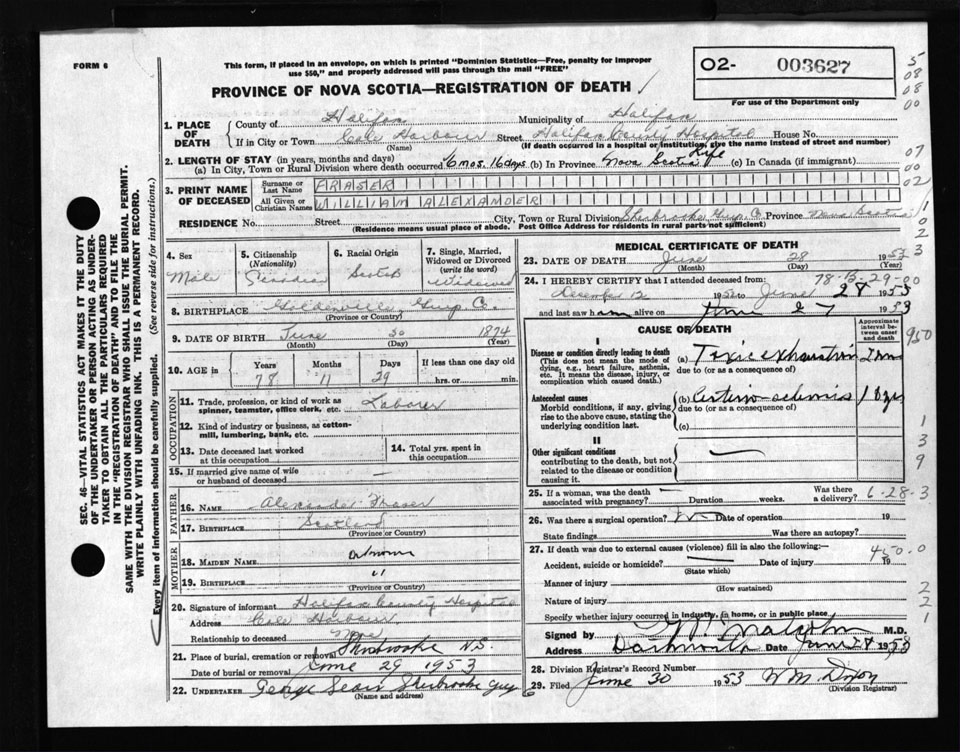 FORM 6
This form, if placed in an envelope, on which is printed "Dominion Statistics—Free, penalty for improper
use $50," and properly addressed will pass through the mail "FREE"
PROVINCE OF NOVA SCOTIA—REGISTRATION OF DEATH
O2- 003627
For use of the Department only
1. PLACE OF DEATH
County of Halifax Municipality of Halifax
If in City or Town Cole Harbour Street Halifax County Hospital House No.
(Name) (If death occurred in a hospital or institution, give the name instead of street and number)
2. LENGTH OF STAY (in years, months and days)
(a) In City, Town or Rural Division where death occurred 6 mos. 16 days (b) In Province Nova Scotia Life (c) In Canada (if immigrant)
3. PRINT NAME OF DECEASED
Surname or Last Name FRASER
All Given or Christian Names WILLIAM ALEXANDER
RESIDENCE No. Street City, Town or Rural Division Sherbrooke Guy. Co. Province Nova Scotia
(Residence means usual place of abode. Post Office Address for residents in rural parts not sufficient)
4. Sex Male
5. Citizenship (Nationality) Canadian
6. Racial Origin Scotch
7. Single, Married, Widowed or Divorced (write the word) Widowed
8. BIRTHPLACE Goldenville Guy. Co.
(Province or Country)
9. DATE OF BIRTH June 30 1874
(Month) (Day) (Year)
10. AGE in Years Months Days If less than one day old
78 11 29 hrs. or min.
OCCUPATION
11. Trade, profession, or kind of work as spinner, teamster, office clerk, etc. Laborer
12. Kind of industry or business, as cotton-mill, lumbering, bank, etc.
13. Date deceased last worked at this occupation
14. Total yrs. spent in this occupation
15. If married give name of wife or husband of deceased —
FATHER
16. NAME Alexander Fraser
17. BIRTHPLACE Scotland
(Province or Country)
MOTHER
18. MAIDEN NAME unknown
19. BIRTHPLACE "
(Province or Country)
20. Signature of informant Halifax County Hospital
Address Cole Harbour
Relationship to deceased None
21. Place of burial, cremation or removal Sherbrooke N.S.
Date of burial or removal June 29 1953
22. UNDERTAKER George Sears Sherbrooke Guy
(Name and address)
MEDICAL CERTIFICATE OF DEATH
23. DATE OF DEATH June 28 1953
(Month) (Day) (Year)
24. I HEREBY CERTIFY that I attended deceased from:
December 12 1952 to June 28 1953
and last saw him alive on June 27 1953
CAUSE OF DEATH
Approximate interval between onset and death
I
Disease or condition directly leading to death (a) Toxic exhaustion
(This does not mean the mode of dying, e.g., heart failure, asthenia, etc. It means the disease, injury, or complication which caused death.)
due to (or as a consequence of)
Antecedent causes (b)
Morbid conditions, if any, giving rise to the above cause, stating the underlying condition last.
due to (or as a consequence of)
(c)
II
Other significant conditions
contributing to the death, but not related to the disease or condition causing it.
25. If a woman, was the death associated with pregnancy? — Duration weeks. Was there a delivery?
6-28-3
26. Was there a surgical operation? no Date of operation 19
State findings Was there an autopsy?
27. If death was due to external causes (violence) fill in also the following:—
Accident, suicide or homicide? Date of injury 19
(State which)
450.0
Manner of injury
(How sustained)
Nature of injury
Specify whether injury occurred in industry, in home, or in public place
Signed by Malcolm M.D.
Address Dartmouth Date June 28 1953
28. Division Registrar's Record Number
29. Filed June 30 1953 W M Dixon
(Division Registrar)
SEC. 46—VITAL STATISTICS ACT MAKES IT THE DUTY
OF THE UNDERTAKER OR PERSON ACTING AS UNDER-
TAKER TO OBTAIN ALL THE PARTICULARS REQUIRED
IN THE "REGISTRATION OF DEATH" AND TO FILE THE
SAME WITH THE DIVISION REGISTRAR WHO SHALL ISSUE THE BURIAL PERMIT.
WRITE PLAINLY WITH UNFADING INK. THIS IS A PERMANENT RECORD.
Every item of information should be carefully supplied. (See reverse side for instructions.)